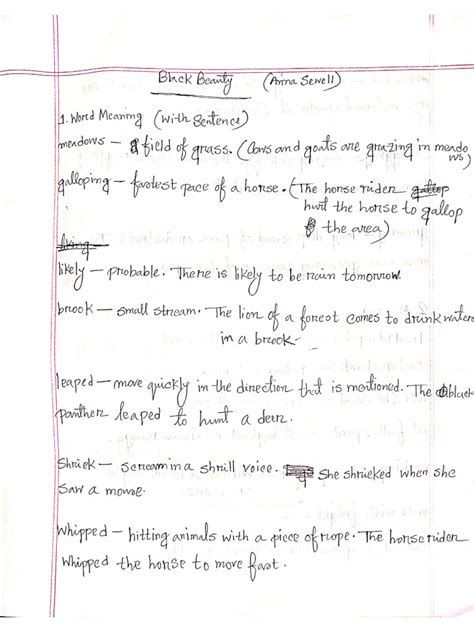 Black Beauty (Anna Sewell)
1. Word Meaning (With Sentence)
meadows — field of grass. (Cows and goats are grazing in meado
ws)
galloping — fastest pace of a horse. (The horse rider
hurt the horse to gallop
the area)
living
likely — probable. There is likely to be rain tomorrow.
brook — small stream. The lion of a forest comes to drink water
in a brook.
leaped — move quickly in the direction that is mentioned. The black
panther leaped to hunt a deer.
Shriek — scream in a shrill voice. She shrieked when she
saw a mouse.
Whipped — hitting animals with a piece of rope. The horse rider
whipped the horse to move fast.